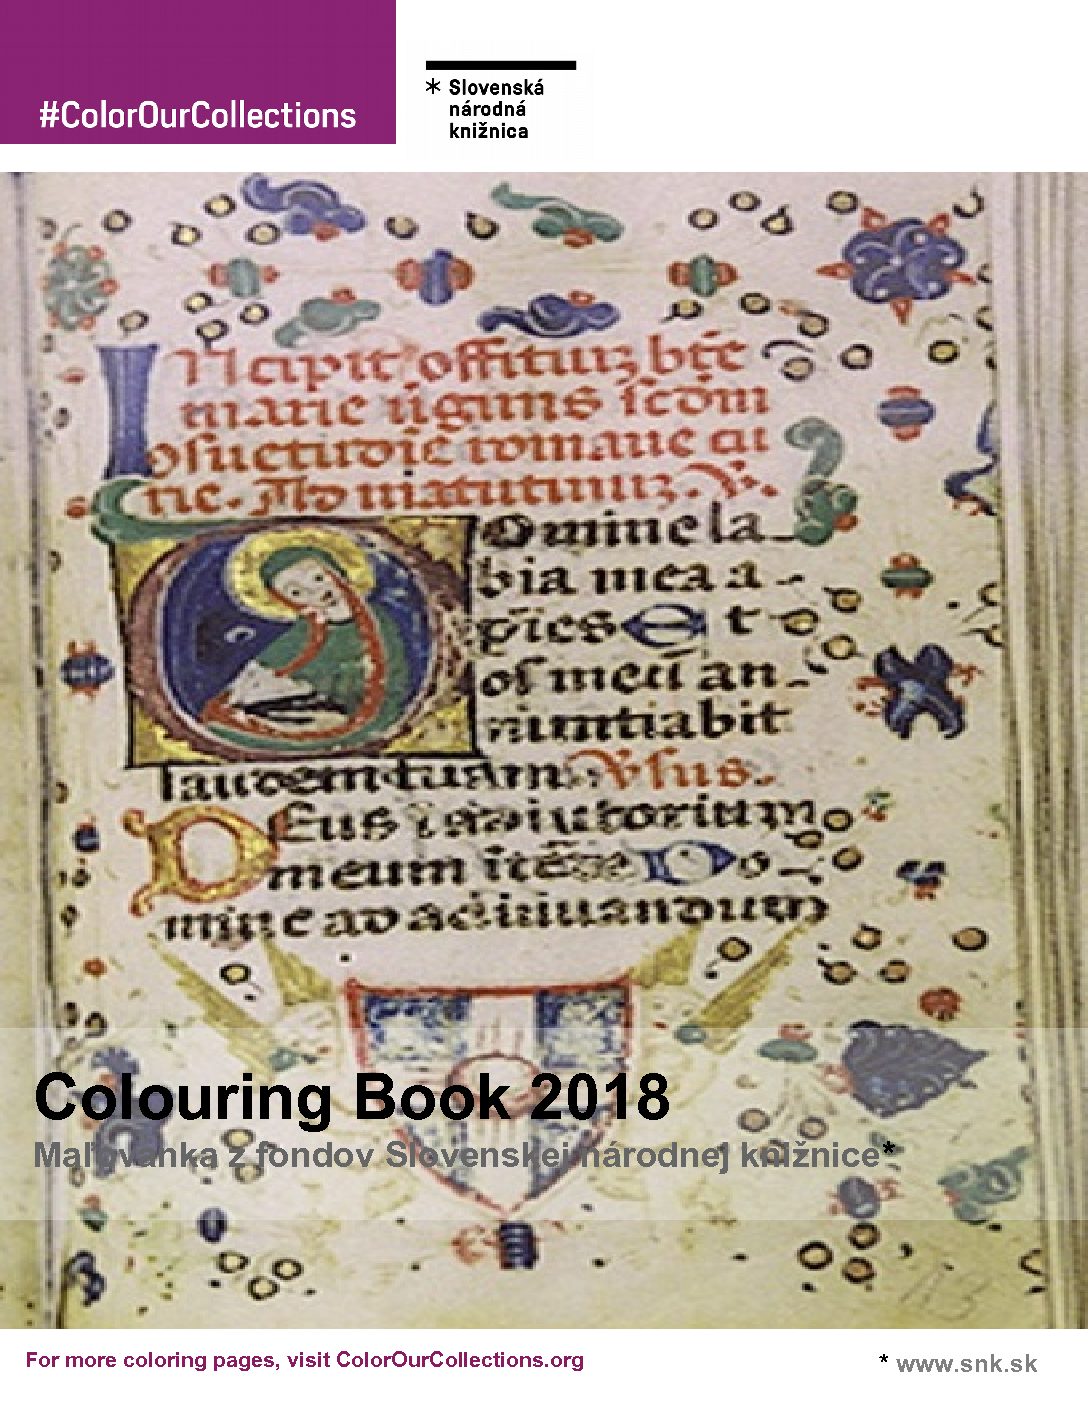 #ColorOurCollections
* Slovenská
národná
knižnica
Incipit offitiuʒ bt̄e
marie ūginis scd̄m
ɔsuetudiē romane cu
rie. Ad matutinuʒ. V̄.
Domine la
bia mea a
p̄ies Et
os meū an
nuntiabit
laudem tuam V̄sus.
Deus ī adiutorium
meum itēde Do
mine ad adiuuandum
Colouring Book 2018
Maľovanka z fondov Slovenskej národnej knižnice*
For more coloring pages, visit ColorOurCollections.org
* www.snk.sk